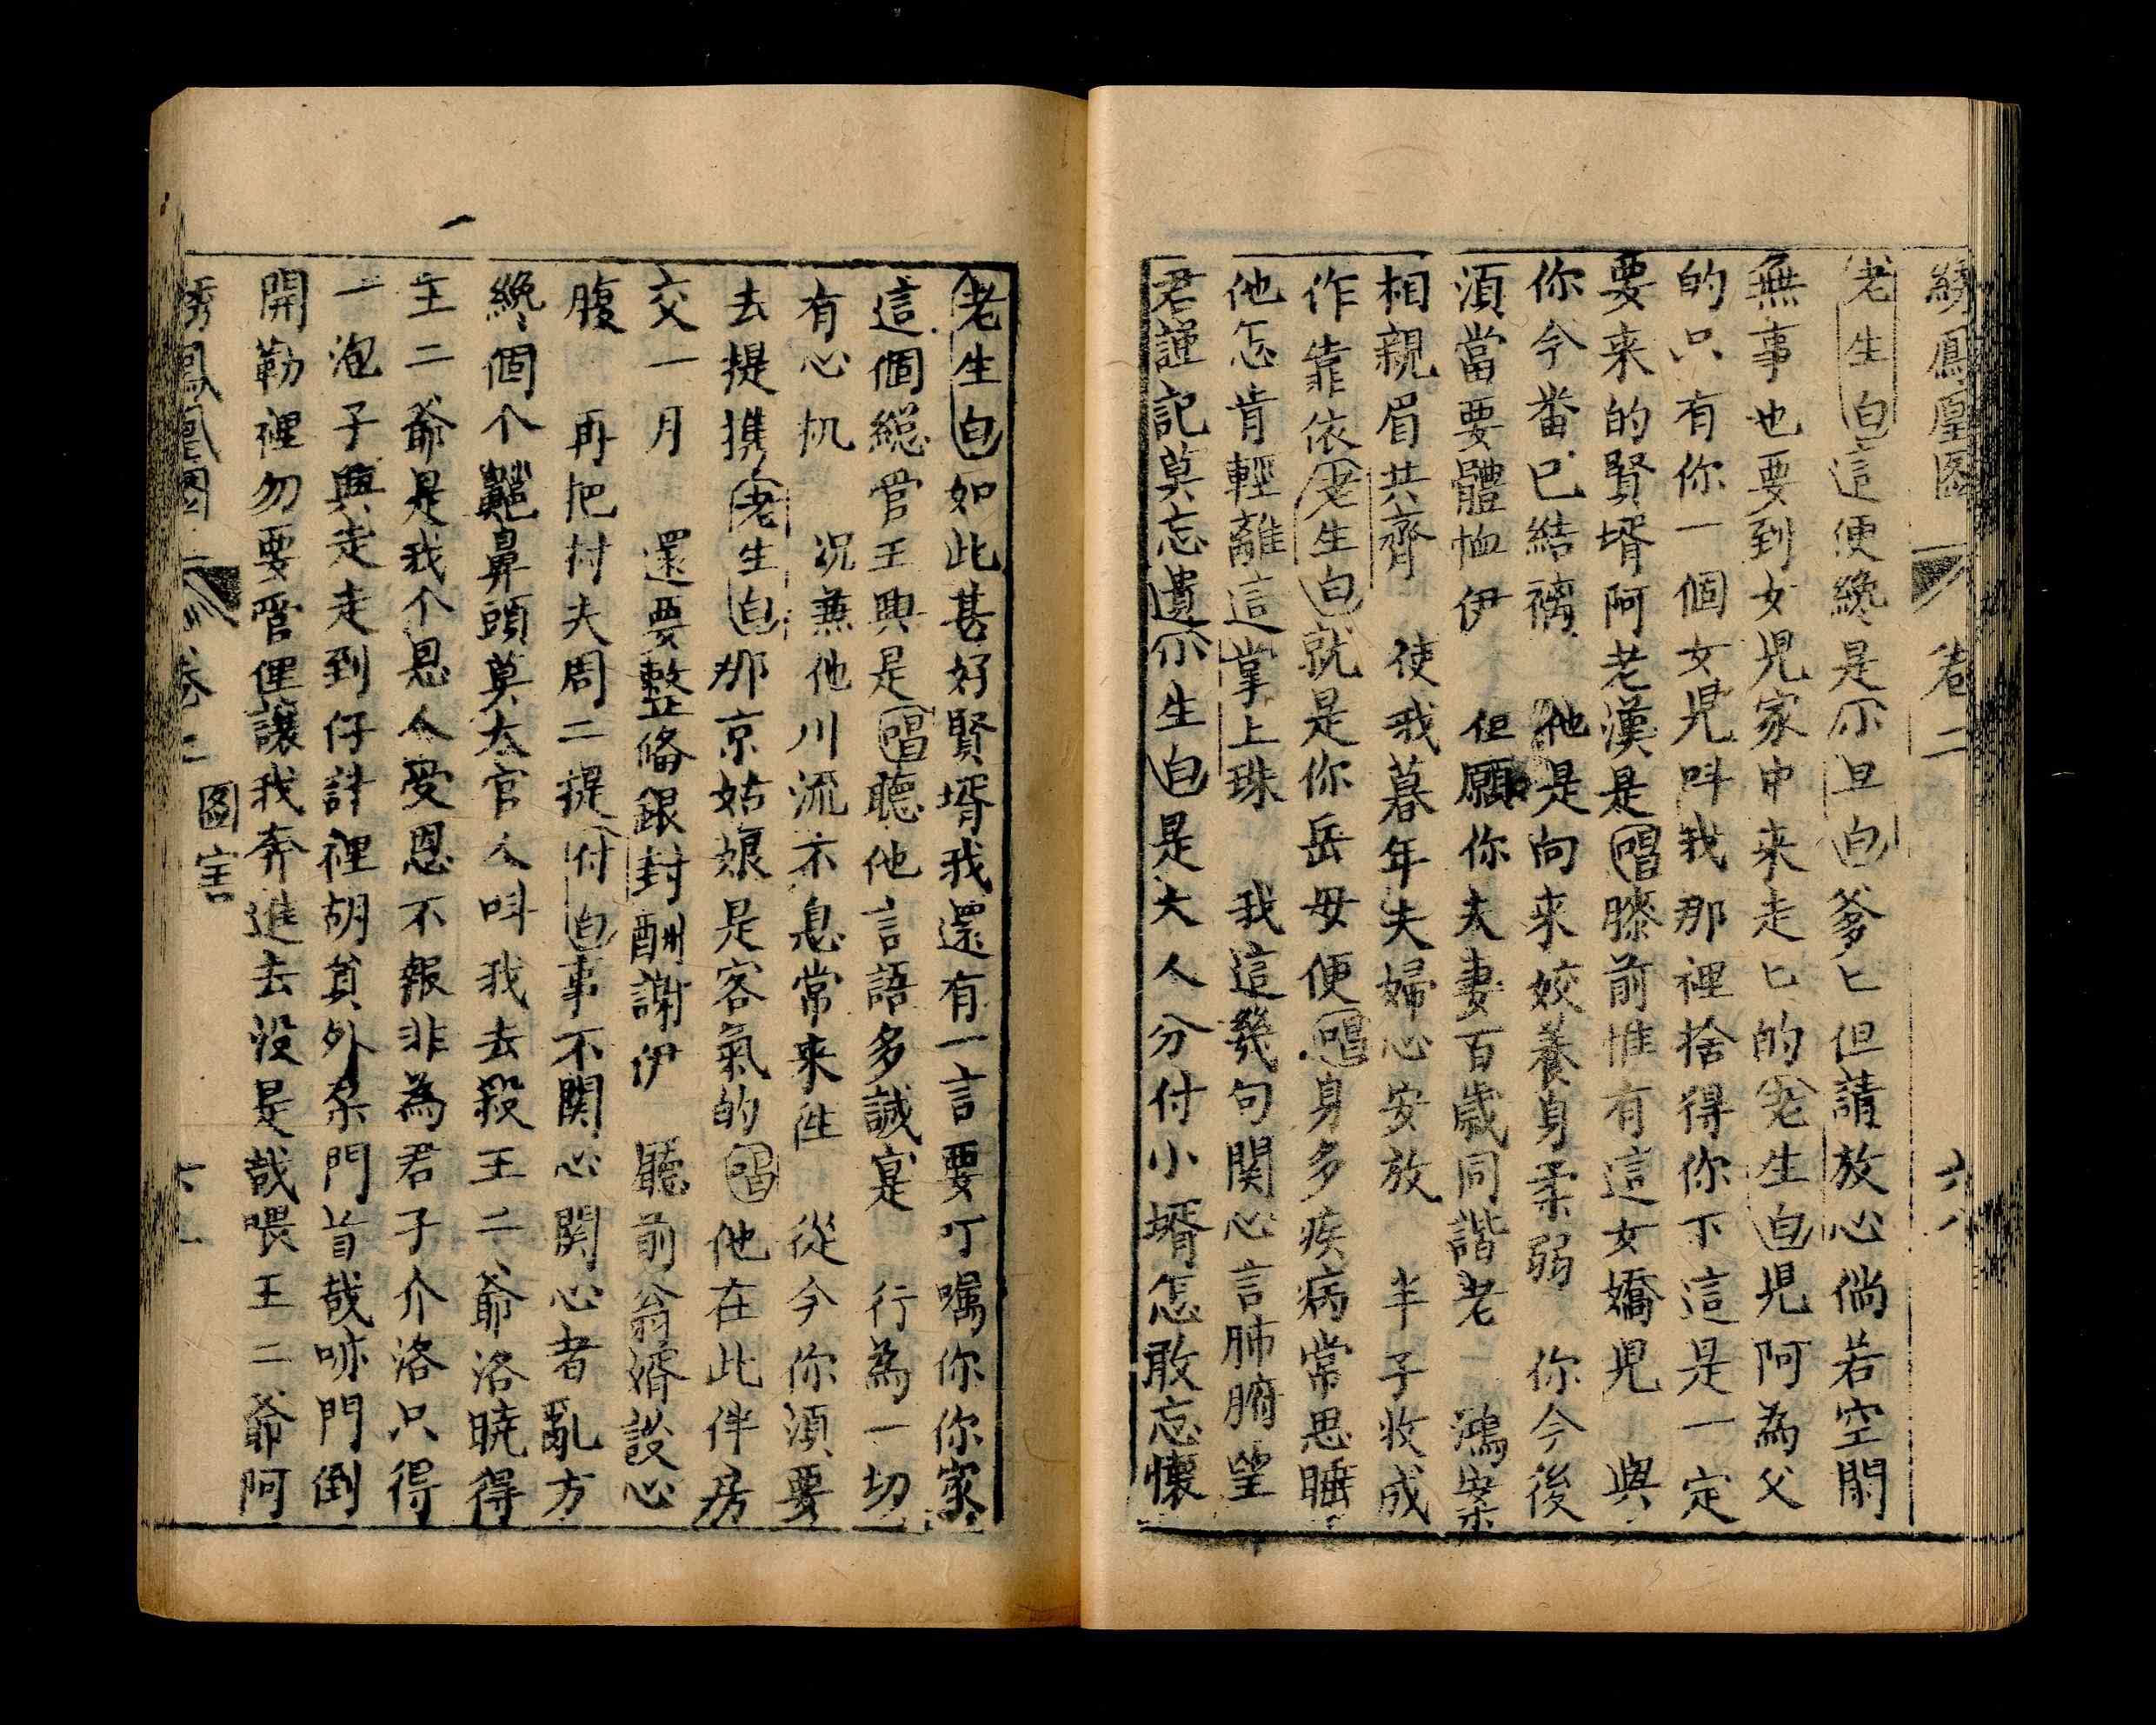 綉鳳凰圖 卷二 六八
老生白這便纔是尒旦白爹匕但請放心倘若空閑
無事也要到女兒家中来走匕的老生白兒阿為父
的只有你一個女兒呌我那裡捨得你下這是一定
要来的賢壻阿老漢是唱膝前惟有這女嬌兒 與
你今畨已結褵 他是向來姣養身柔弱 你今後
湏當要體恤伊 但願你夫妻百歲同諧老 鴻案
相親眉共齊 使我暮年夫婦心安放 半子收成
作靠依老生白就是你岳毋便唱身多疾病常思睡
他怎肯輕離這掌上珠 我這幾句関心言肺腑望
君謹記莫忘遺尒生白是大人分付小壻怎敢忘懷
老生白如此甚好賢壻我還有一言要叮嘱你你家
這個総管王興是唱聽他言語多誠寔 行為一切
有心机 况兼他川流不息常来往 從今你湏要
去提携老生白那京姑娘是客氣的唱他在此伴房
交一月 還要整俻銀封酬謝伊 聽前翁婿談心
腹 再把村夫周二提付白事不関心関心者亂方
纔個个齆鼻頭莫大官人呌我去殺王二爺洛曉得
王二爺是我个恩人受恩不報非為君子介洛只得
一泡子與走走到仔計裡胡筫外朶門首哉㖡門倒
開勒裡勿要管俚讓我奔進去没是哉喂王二爺阿
綉鳳凰圖 卷二
圖害